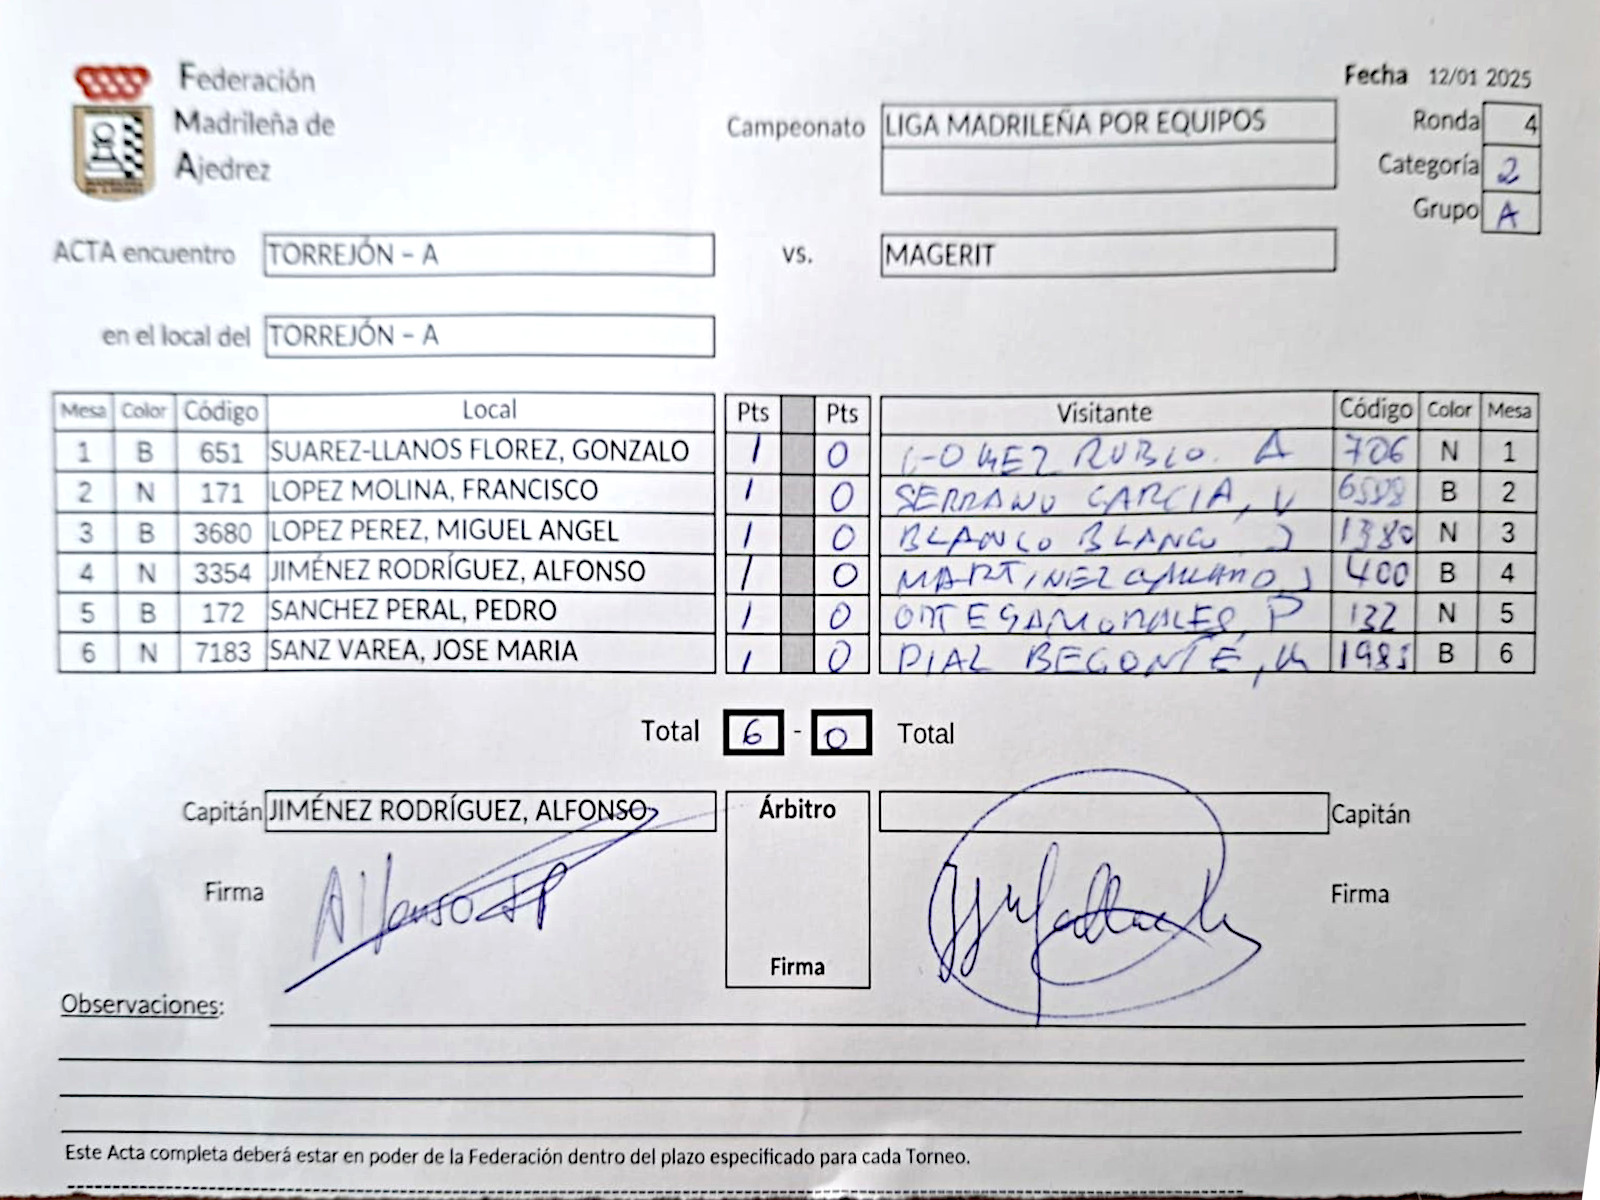 Federación
Madrileña de
Ajedrez
Fecha 12/01 2025
Campeonato LIGA MADRILEÑA POR EQUIPOS
Ronda 4
Categoría 2
Grupo A
ACTA encuentro TORREJÓN - A vs. MAGERIT
en el local del TORREJÓN - A
Mesa Color Código Local Pts Pts Visitante Código Color Mesa
1 B 651 SUAREZ-LLANOS FLOREZ, GONZALO 1 0 GOMEZ RUBIO. A 706 N 1
2 N 171 LOPEZ MOLINA, FRANCISCO 1 0 SERRANO GARCIA, B 2
3 B 3680 LOPEZ PEREZ, MIGUEL ANGEL 1 0 BLANCO BLANCO J 1380 N 3
4 N 3354 JIMÉNEZ RODRÍGUEZ, ALFONSO 1 0 MARTINEZ J 400 B 4
5 B 172 SANCHEZ PERAL, PEDRO 1 0 ORTEGA MORALES, P 132 N 5
6 N 7183 SANZ VAREA, JOSE MARIA 1 0 B 6
Total 6 - 0 Total
Capitán JIMÉNEZ RODRÍGUEZ, ALFONSO Árbitro Capitán
Firma Alfonso Firma
Firma
Observaciones:
Este Acta completa deberá estar en poder de la Federación dentro del plazo especificado para cada Torneo.